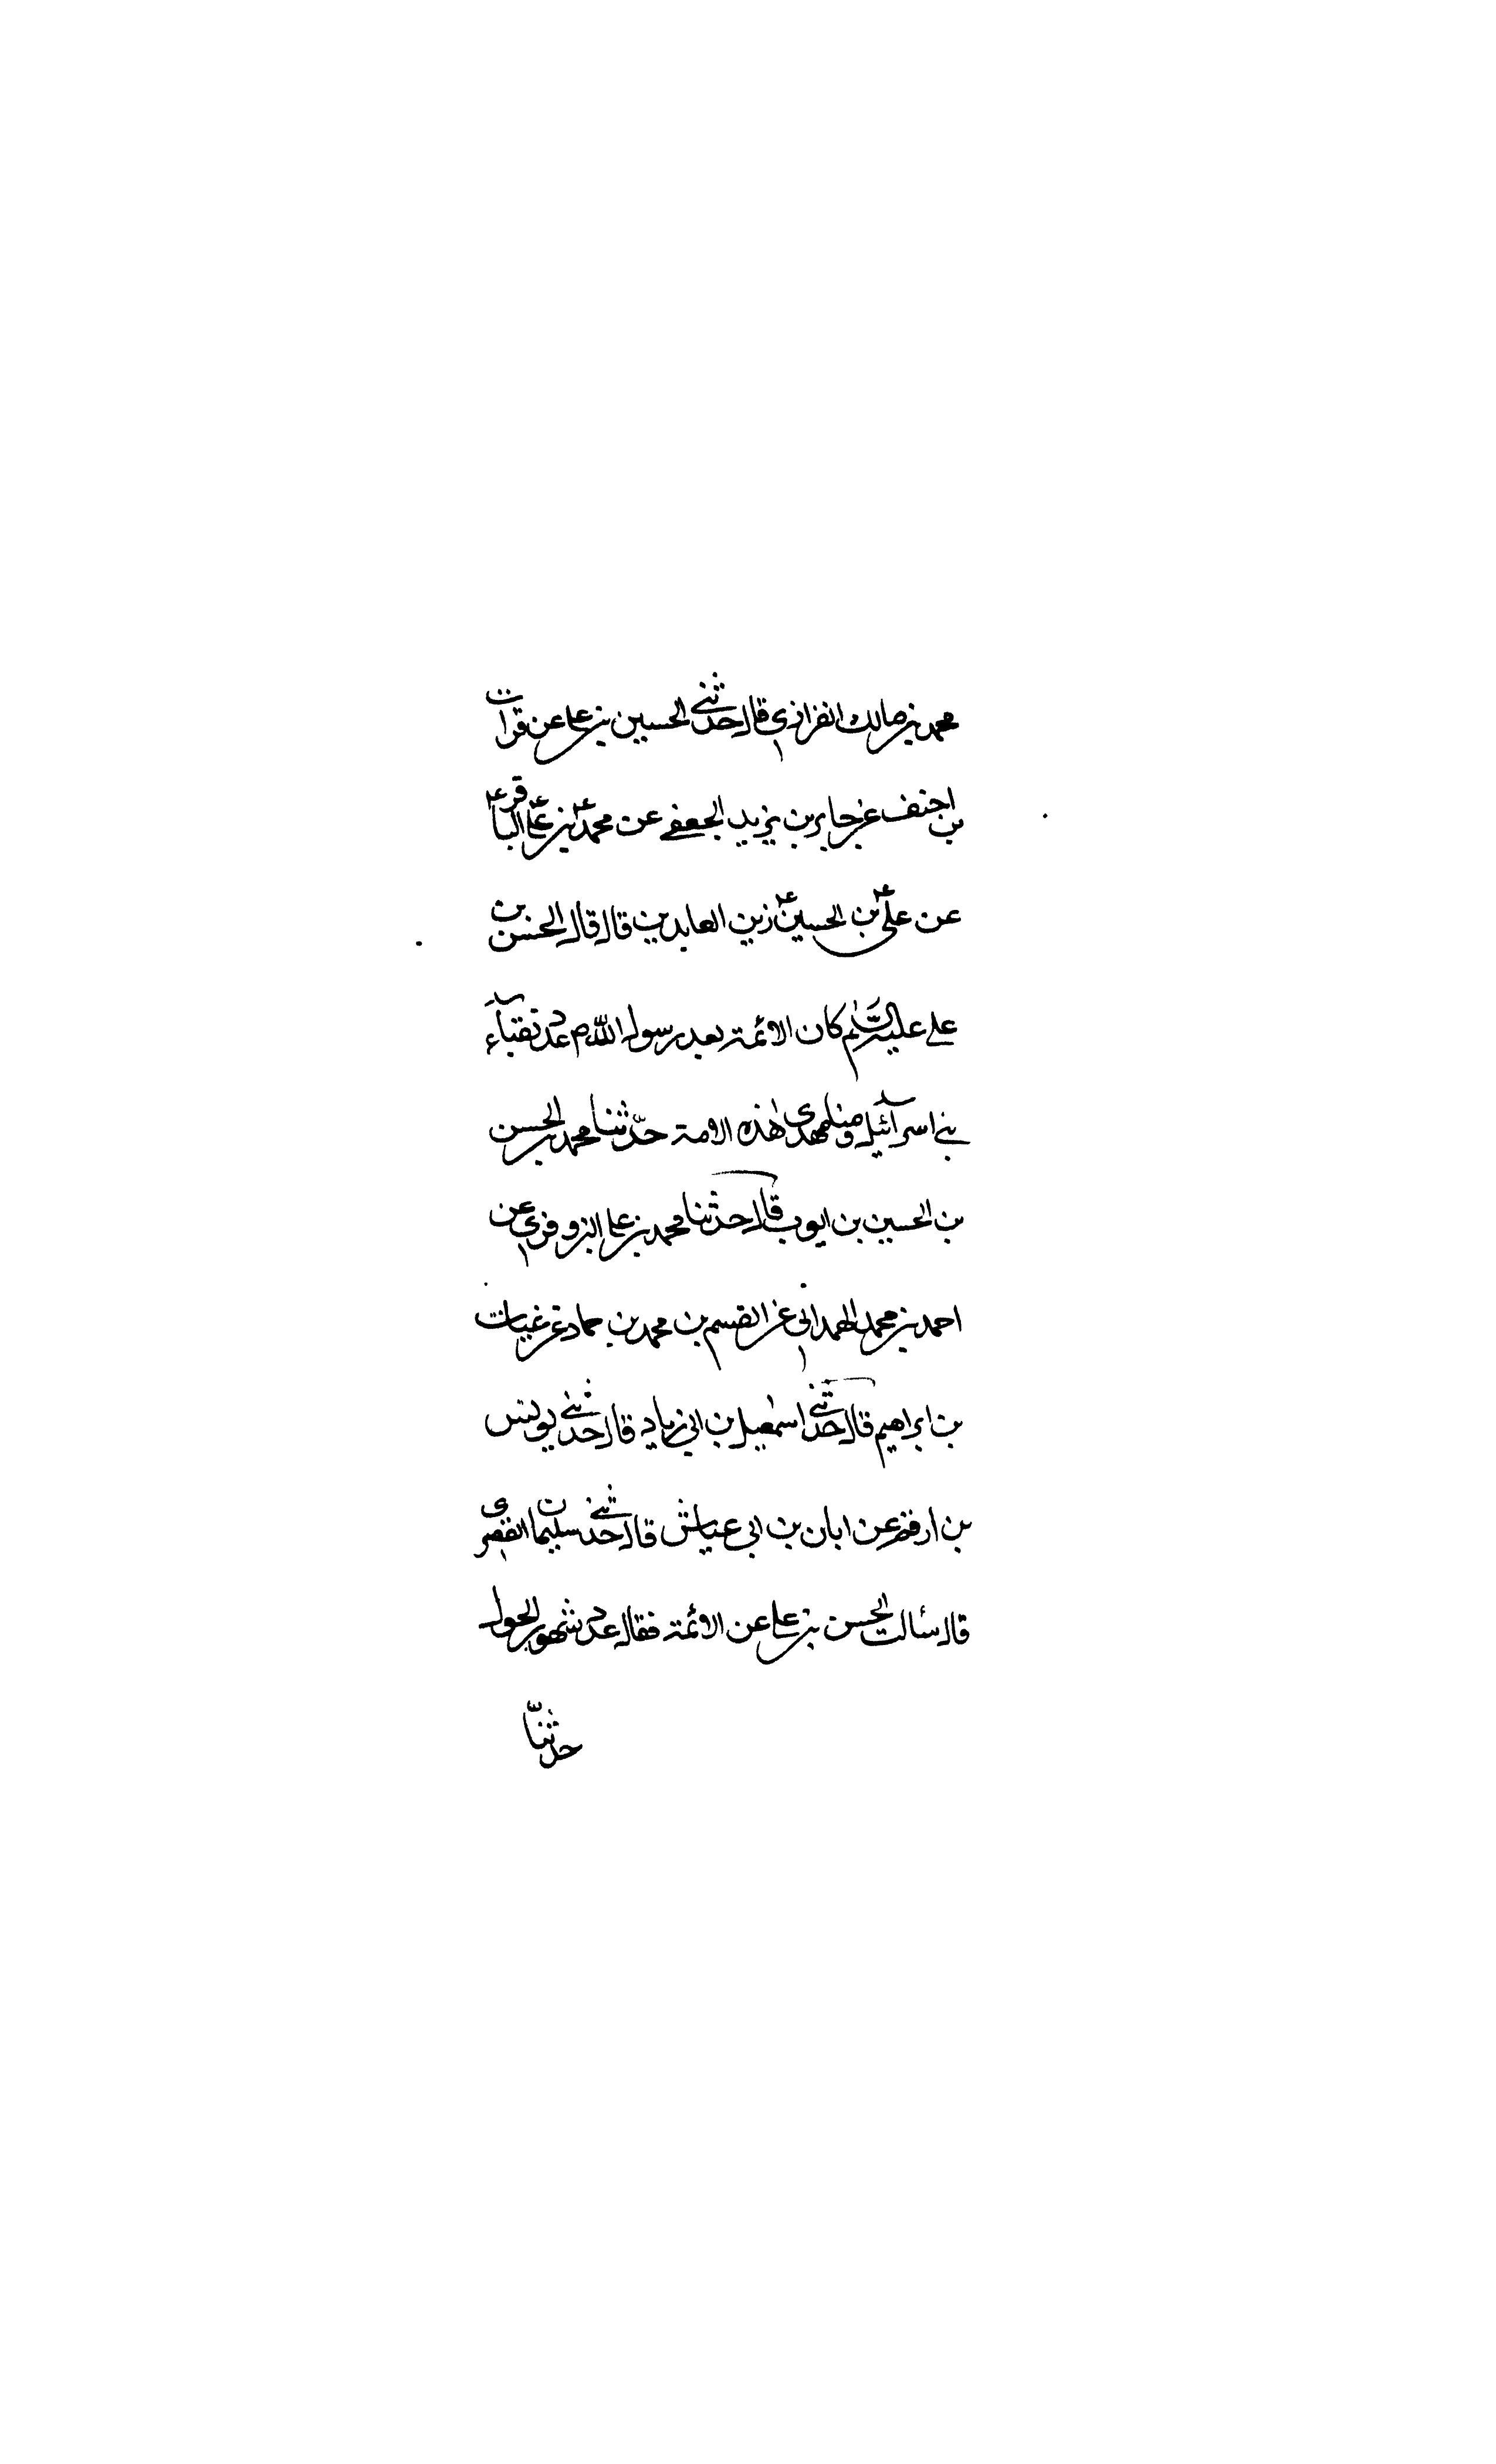 محمد بن مالك الفزازي قال حدثني الحسين بن علي عن فرات
بن احنف عن جابر بن يزيد الجعفي عن محمد بن علي الباقر ع
عن علي بن الحسين زين العابدين قال قال الحسن بن
علي عليه السّلم كان الائمة بعد رسول الله ص عدد نقباء
بني اسرآئيل ومنا مهدي هذه الامة حدّثنا محمد بن الحسن
بن الحسين بن ايوب قال حدثنا محمد بن علي البزوفري عن
احمد بن محمد الهمداني عن القسم بن محمد بن حماد عن غياث
بن ابراهيم قال حدثني اسمعيل بن ابي زياد قال حدثني يونس
بن ارقم عن ابان بن ابي عياش قال حدثني سليمان القصري
قال سألت الحسن بن علي عن الائمة فقال عدد شهور الحول
حدثنا